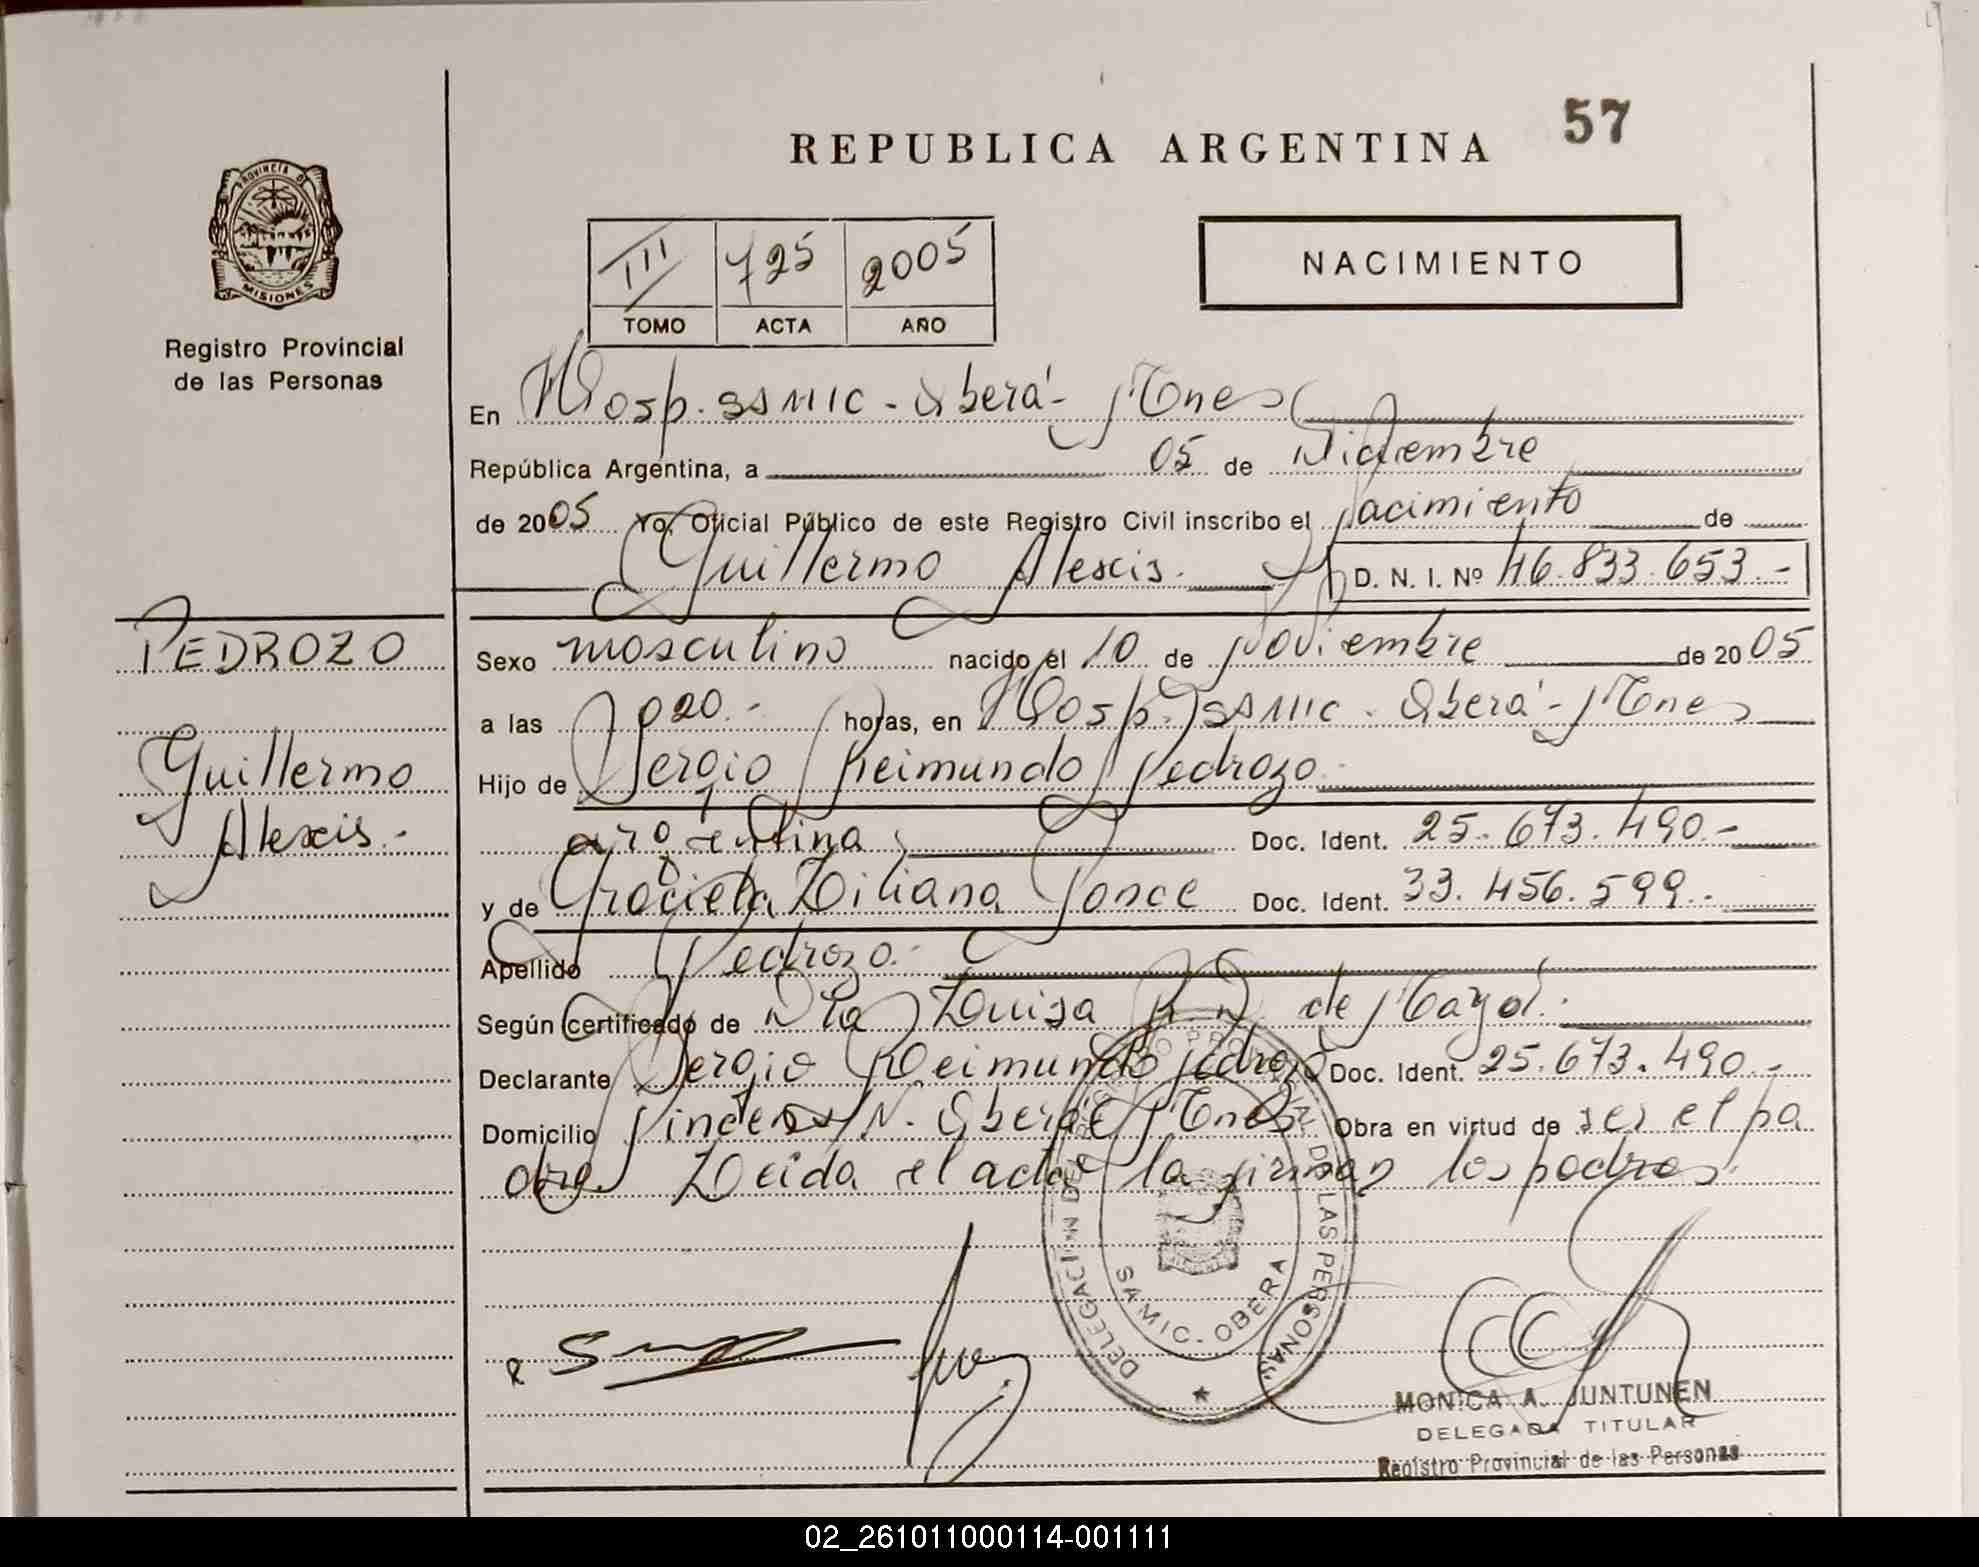 57
REPUBLICA ARGENTINA
PROVINCIA DE
MISIONES
Registro Provincial
de las Personas
III 725 2005
TOMO ACTA AÑO
NACIMIENTO
En Hosp. SSMIC - Oberá - Mnes
República Argentina, a 05 de Diciembre
de 2005 Yo, Oficial Público de este Registro Civil inscribo el Nacimiento de
Guillermo Alexis. D. N. I. Nº 46.833.653.-
PEDROZO
Guillermo
Alexis.-
Sexo masculino nacido el 10 de Noviembre de 2005
a las 1020.- horas, en Hosp. SSMIC - Oberá - Mnes
Hijo de Sergio Reimundo Pedrozo
argentina Doc. Ident. 25.673.490.-
y de Graciela Liliana Ponce Doc. Ident. 33.456.599.-
Apellido Pedrozo.-
Según certificado de Dra Luisa de Mayol.
Declarante Sergio Reimundo Pedrozo Doc. Ident. 25.673.490.-
Domicilio S/N. Oberá Mnes Obra en virtud de ser el pa
dre Leida el acta la firman los padres
DELEGACION DEL REGISTRO PROVINCIAL DE LAS PERSONAS
SAMIC - OBERA
MONICA A. JUNTUNEN
DELEGADA TITULAR
Registro Provincial de las Personas
02_261011000114-001111